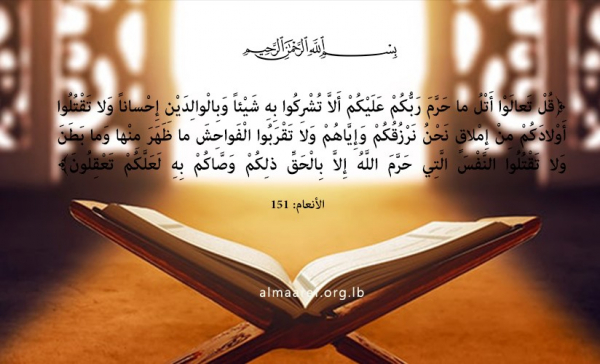 بِسْمِ اللَّهِ الرَّحْمَنِ الرَّحِيمِ
﴿قُلْ تَعالَوْا أَتْلُ ما حَرَّمَ رَبُّكُمْ عَلَيْكُمْ أَلاَّ تُشْرِكُوا بِهِ شَيْئاً وَبِالْوالِدَيْنِ إِحْساناً وَلا تَقْتُلُوا
أَوْلادَكُمْ مِنْ إِمْلاقٍ نَحْنُ نَرْزُقُكُمْ وَإِيَّاهُمْ وَلا تَقْرَبُوا الْفَواحِشَ ما ظَهَرَ مِنْها وَما بَطَنَ
وَلا تَقْتُلُوا النَّفْسَ الَّتِي حَرَّمَ اللَّهُ إِلاَّ بِالْحَقِّ ذلِكُمْ وَصَّاكُمْ بِهِ لَعَلَّكُمْ تَعْقِلُونَ﴾
الأنعام: 151
almaaref.org.lb